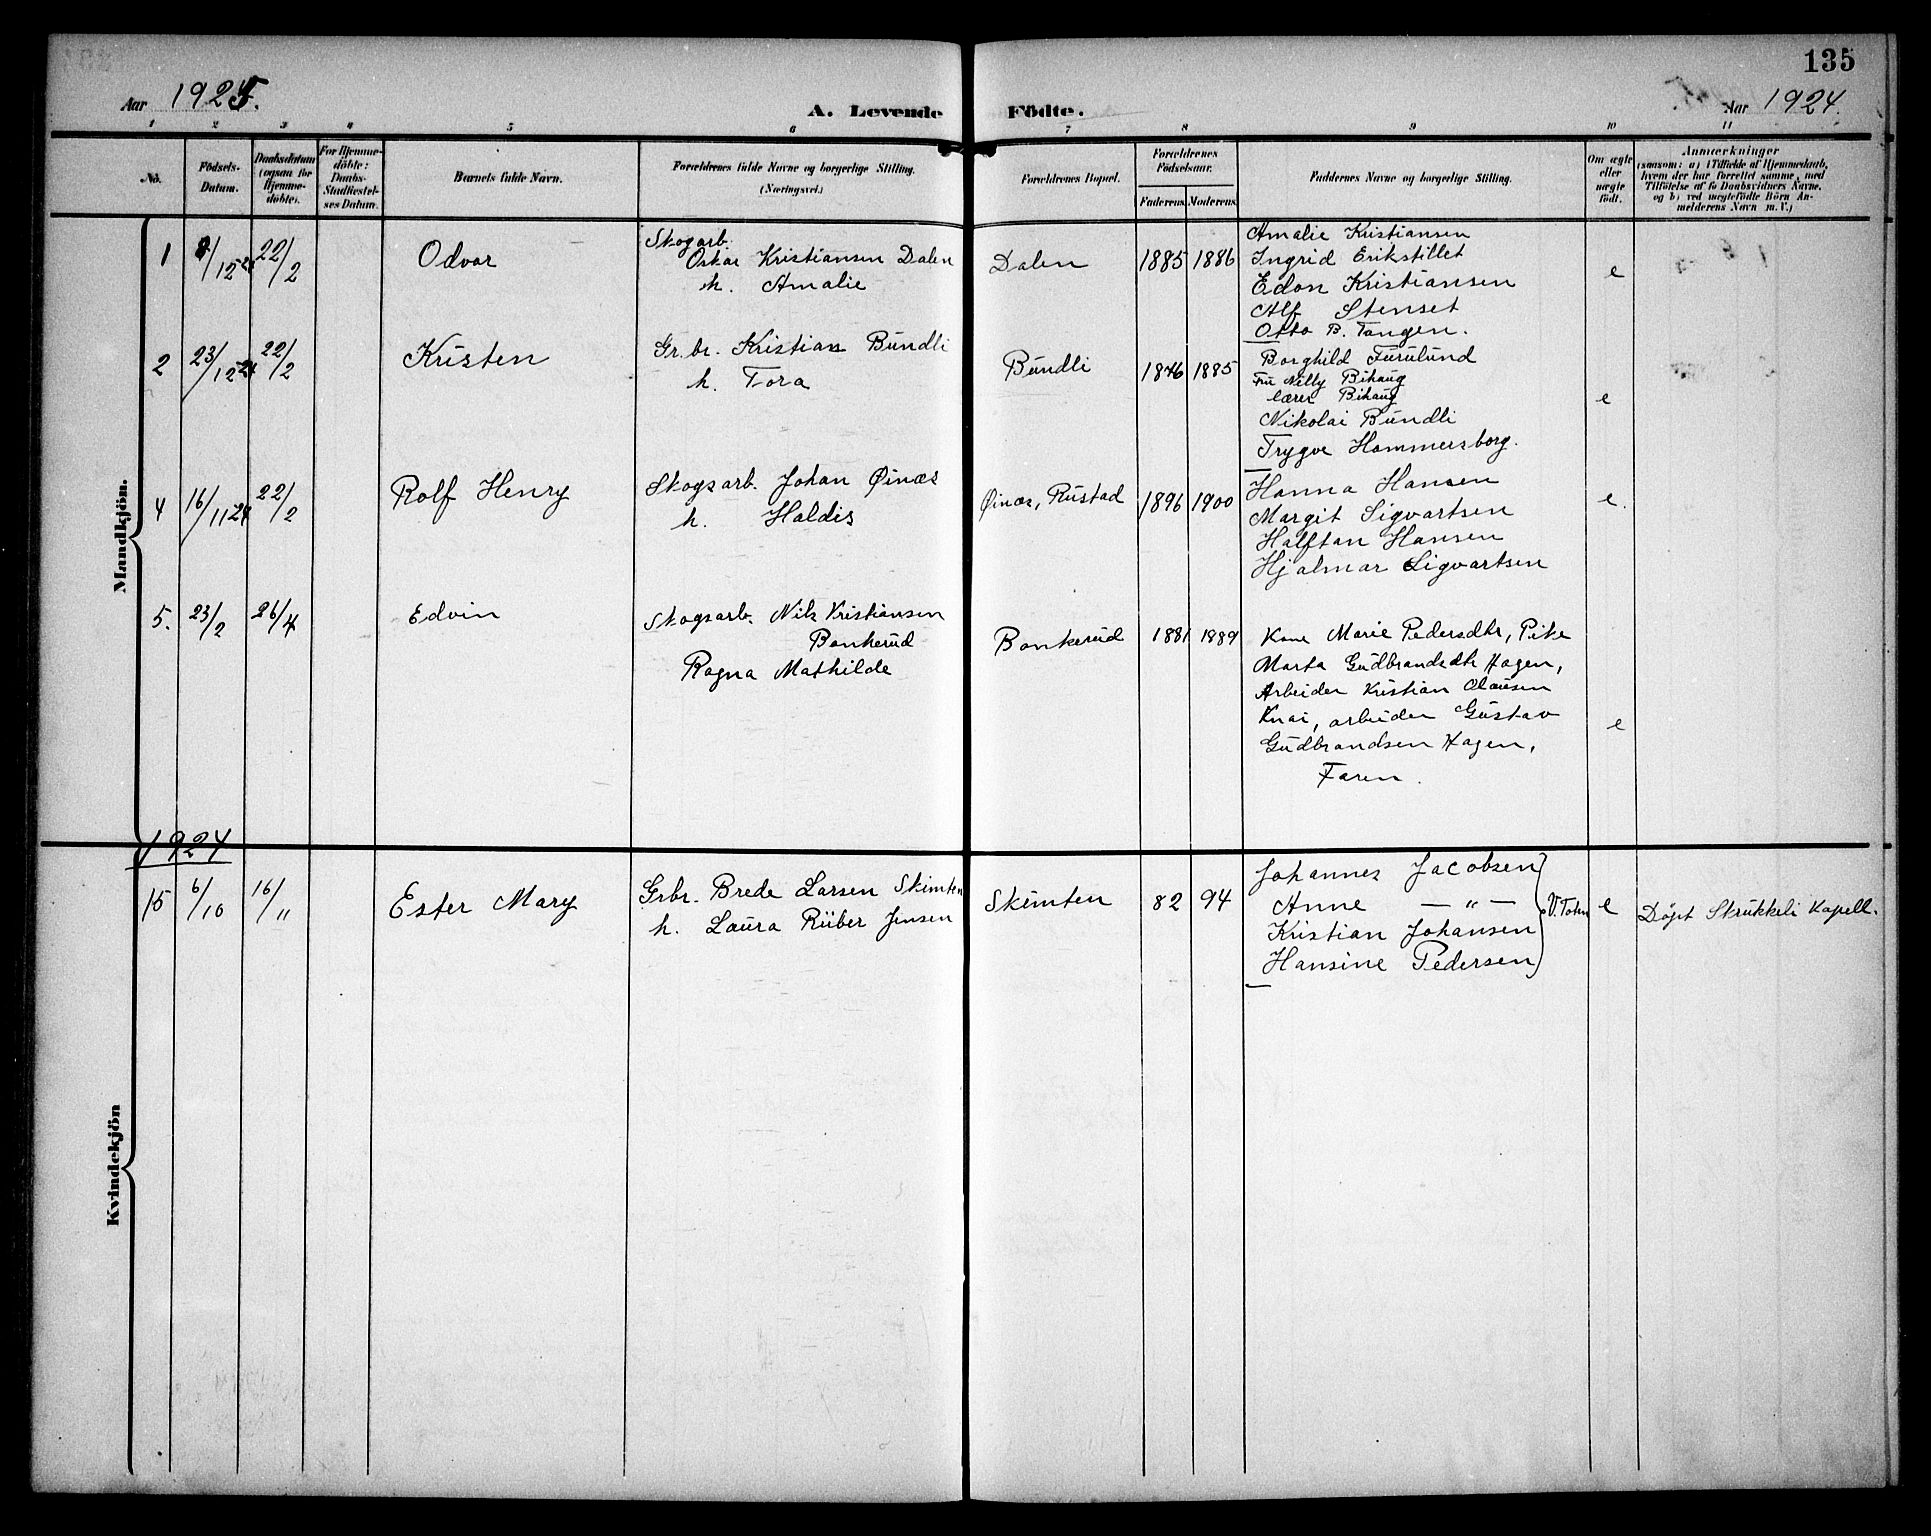 135
Aar 1925.
A. Levende
Födte.
Aar 1924.
1 2 3 4 5 6 7 8 9 10 11
No.
Födsels-
Datum.
Daabsdatum
(ogsaa for
Hjemme-
döbte).
For Hjemme-
döbte:
Daabs-
Stadfæstel-
ses Datum.
Barnets fulde Navn.
Forældrenes fulde Navne og borgerlige Stilling.
(Næringsvei.)
Forældrenes Bopæl.
Forældrenes
Födselsaar.
Faderens.
Moderens.
Faddernes Navne og borgerlige Stilling.
Om ægte
eller
uægte
födt.
Anmærkninger
(saasom: a) i Tilfælde af Hjemmedaab,
hvem der har forrettet samme, med
Tilföielse af to Daabsvidners Navne,
og b) ved uægtefödte Börn An-
melderens Navn m. V.)
Mandkjön.
1 /12 24 22/2 Odvar
Skogarb.
Oskar Kristiansen Dalen
h. Amalie
Dalen 1885 1886
Amalie Kristiansen
Ingrid Erikstillet
Edon Kristiansen
Alf Stenset
Otto B. Tangen.
e
2 23/12 24 22/2 Kristen
Gr.br. Kristian Bundli
h. Tora
Bundli 1876 1885
Borghild Furulund
Fru Nilly Bihaug
lærer Bihaug
Nikolai Bundli
Trygve Hammersborg.
e
4 16/11 24 22/2 Rolf Henry
Skogsarb. Johan Øinæs
h. Haldis
Øinæs, Rustad 1896 1900
Hanna Hansen
Margit Sigvartsen
Halftan Hansen
Hjalmar Sigvartsen
e.
5. 23/2 26/4 Edvin
Skogsarb. Nils Kristiansen
Bankerud
Ragna Mathilde
Bankerud 1881 1889
Kone Marie Pedersdtr, Pike
Marta Gudbrandsdtr Hagen,
Arbeider Kristian Olausen
Knai, arbeider Gustav
Gudbrandsen Hagen,
Faren.
e
1924
Kvindekjön
15 6/10 16/11 Ester Mary
Grbr. Brede Larsen Skimten
h. Laura Rüber Jensen
Skimten 82 94
Johannes Jacobsen
Anne — " —
Kristian Johansen
Hansine Pedersen
V. Toten
e
Døpt Strukkeli Kapell.